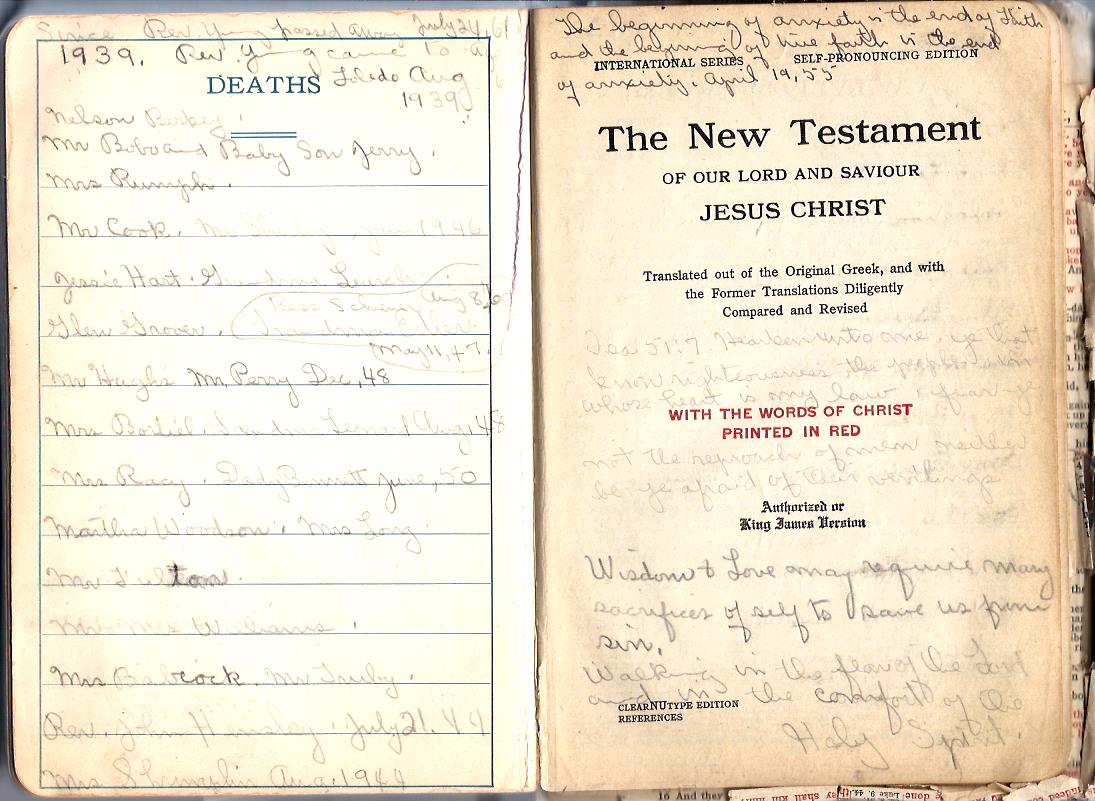 Since Rev. Young passed away July 24, 61
1939. Rev Young came to
Toledo Aug
1939
DEATHS
Nelson Berkey
Mr Bobo and Baby Son Jerry.
Mrs Rumph.
Mr Cook. 1946
Jessie Hart. Grandma
Bess Aug 8
Glen Grover. Grandma
May 11, 47.
Mr Hughs Mr. Perry Dec, 48
Mrs Aug, 48
Mrs Racy. Dady Bennett June, 50
Martha Woodson. Mrs Long.
Mr Fulton.
Mr Mrs Williams.
Mrs Babcock. Mr Truby.
Rev. John July 21. 44
Mrs Shrimplin Aug. 1944
The beginning of anxiety is the end of Faith
and the beginning of true faith is the end
of anxiety. April 19, 55
INTERNATIONAL SERIES SELF-PRONOUNCING EDITION
The New Testament
OF OUR LORD AND SAVIOUR
JESUS CHRIST
Translated out of the Original Greek, and with
the Former Translations Diligently
Compared and Revised
Isa 51:7 Hearken unto me, ye that
know righteousness the people in
whose heart is my law fear ye
WITH THE WORDS OF CHRIST
PRINTED IN RED
not the reproach of men neither
be ye afraid of their revilings
Authorized or
King James Version
Wisdom & Love may require many
sacrifices of self to save us from
sin.
Walking in the fear of the Lord
and in the comfort of the
CLEARNUTYPE EDITION
REFERENCES
Holy Spirit.
16 And they